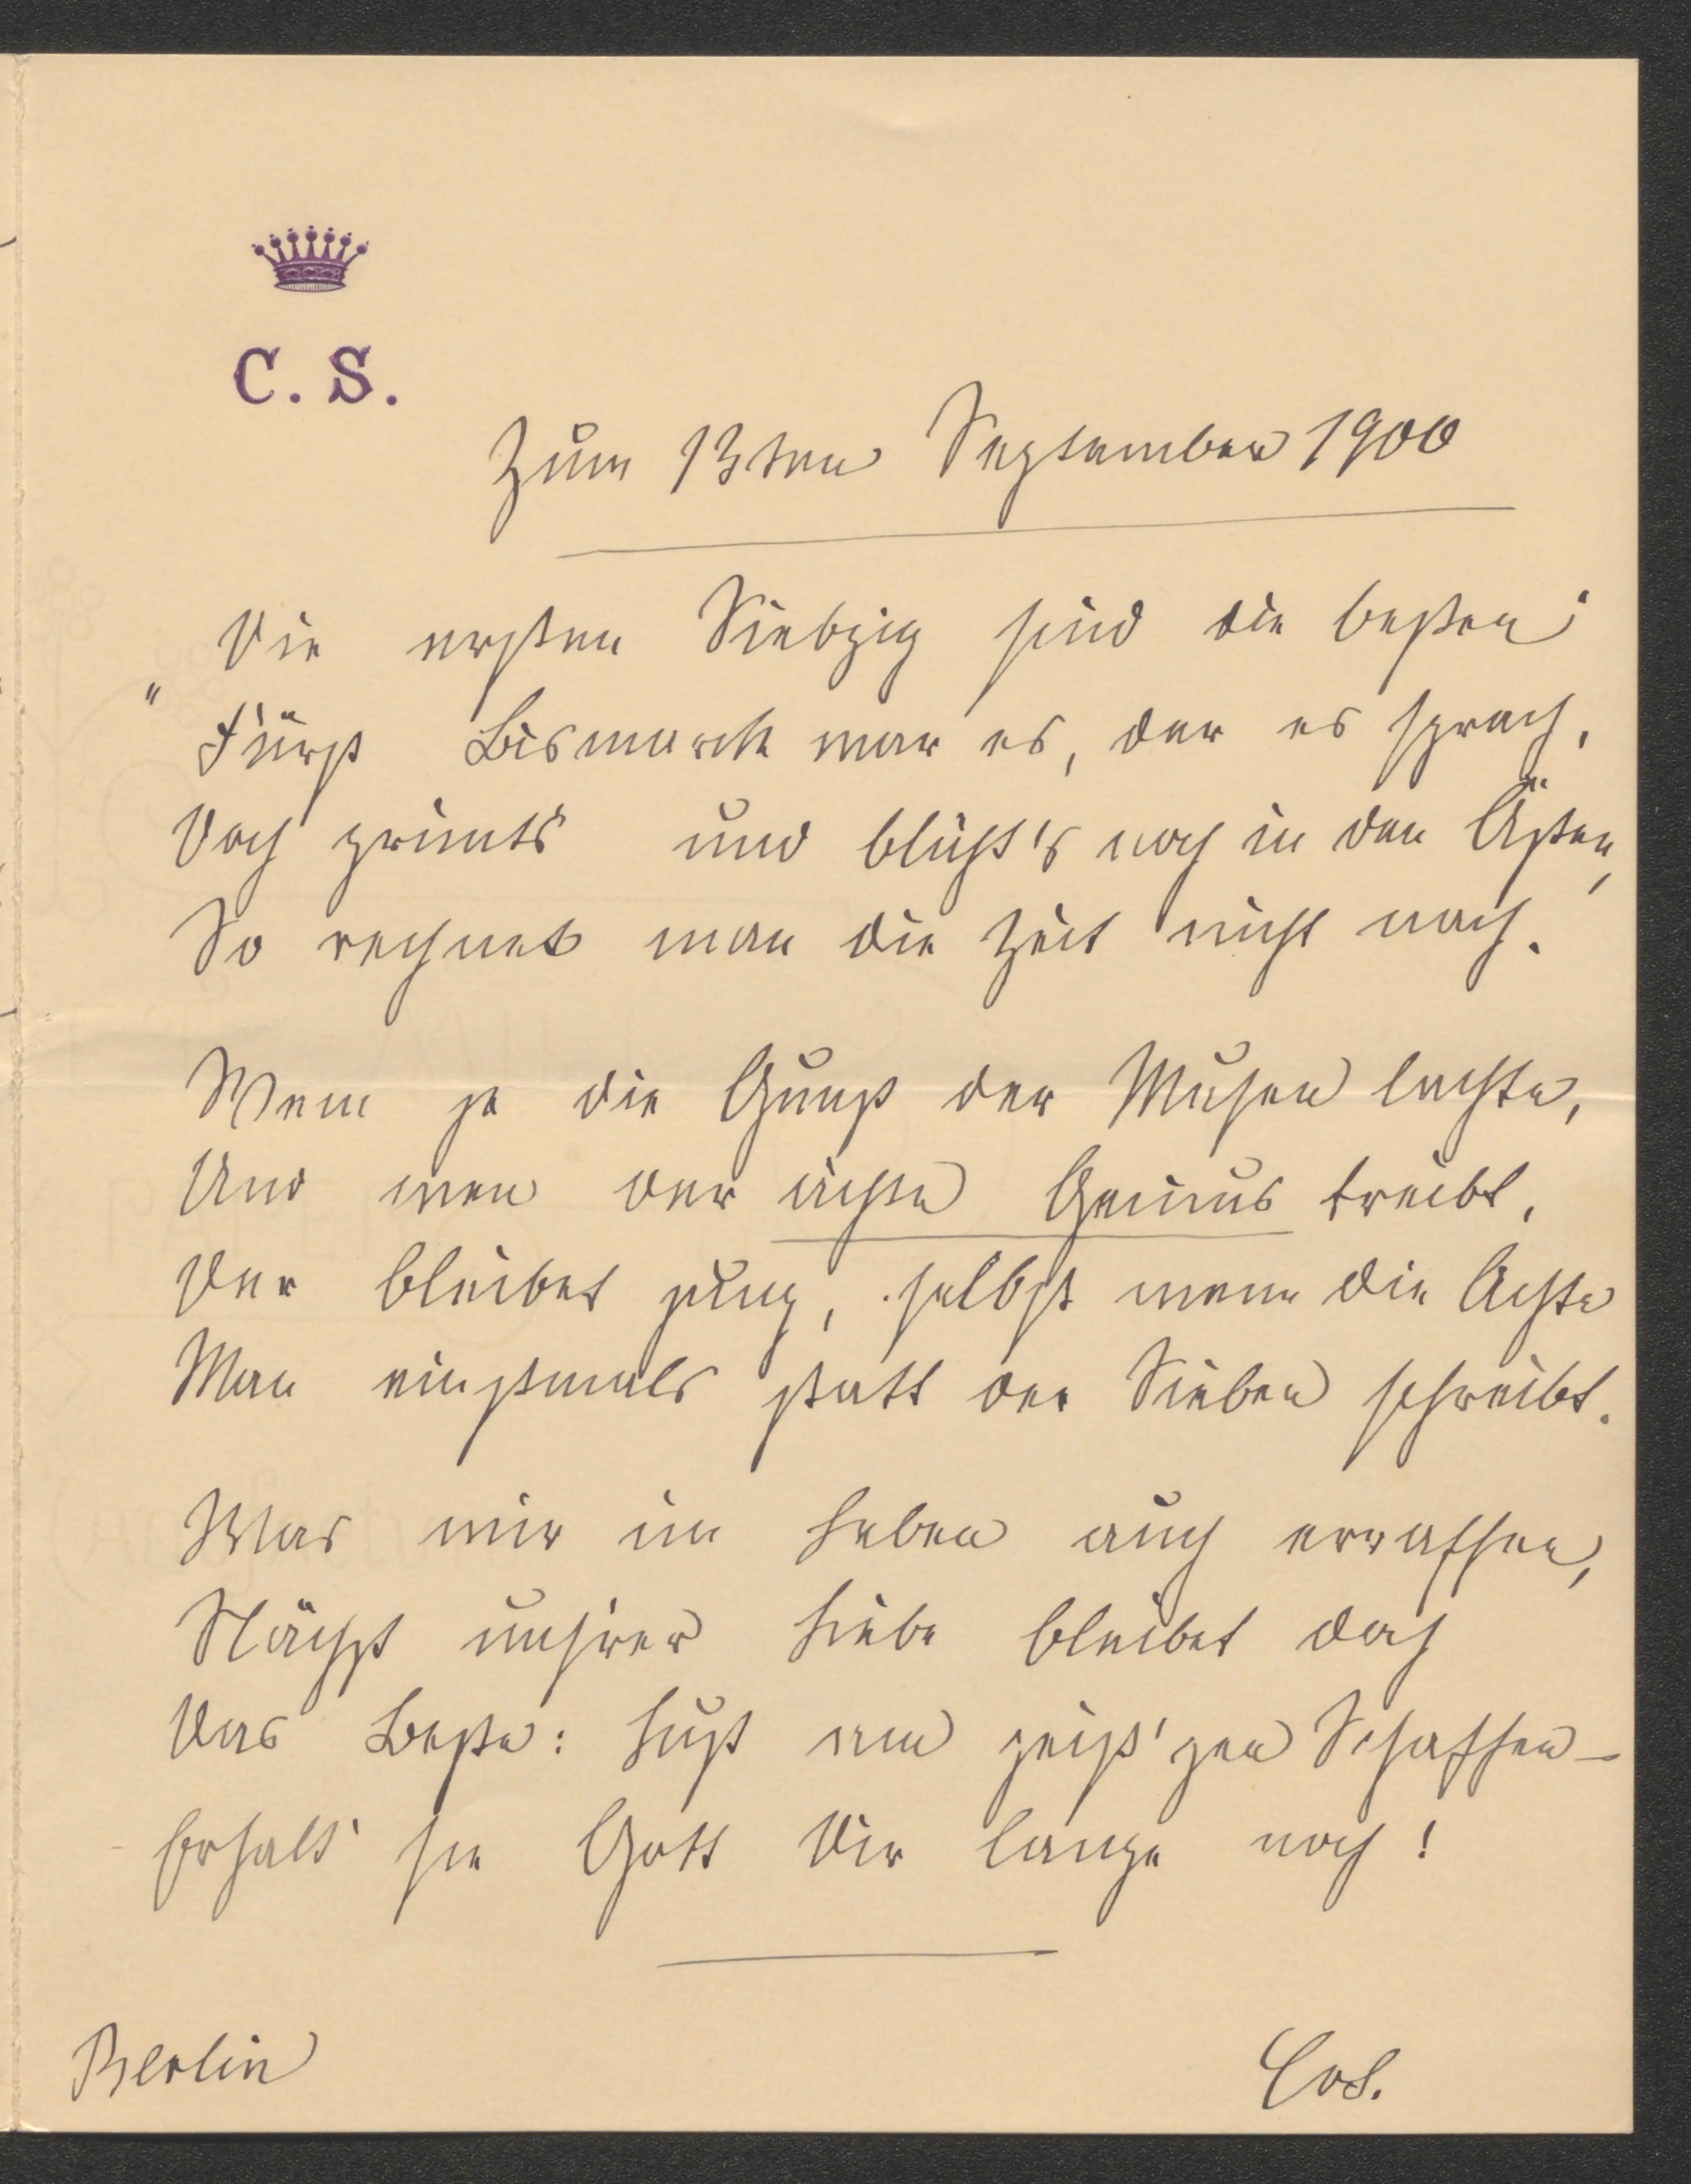 C. S.
Zum 13ten September 1900
„Die ersten Siebzig sind die besten“
Fürst Bismarck war es, der es sprach,
Doch grünts und blüht's noch in den Ästen,
So rechnet man die Zeit nicht nach.
Wem je die Gunst der Musen lachte,
Und wen der ächte Genius treibt,
Der bleibet jung, selbst wenn die Achte
Man einstmals statt der Sieben schreibt.
Was wir im Leben auch erraffen,
Nächst unsrer Liebe bleibet doch
Das Beste: Lust am geist'gen Schaffen –
Erhalt' sie Gott Dir lange noch!
Berlin